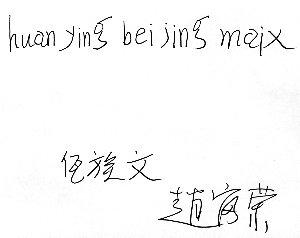 huan ying bei jing maix
伍旋文
趙家荣